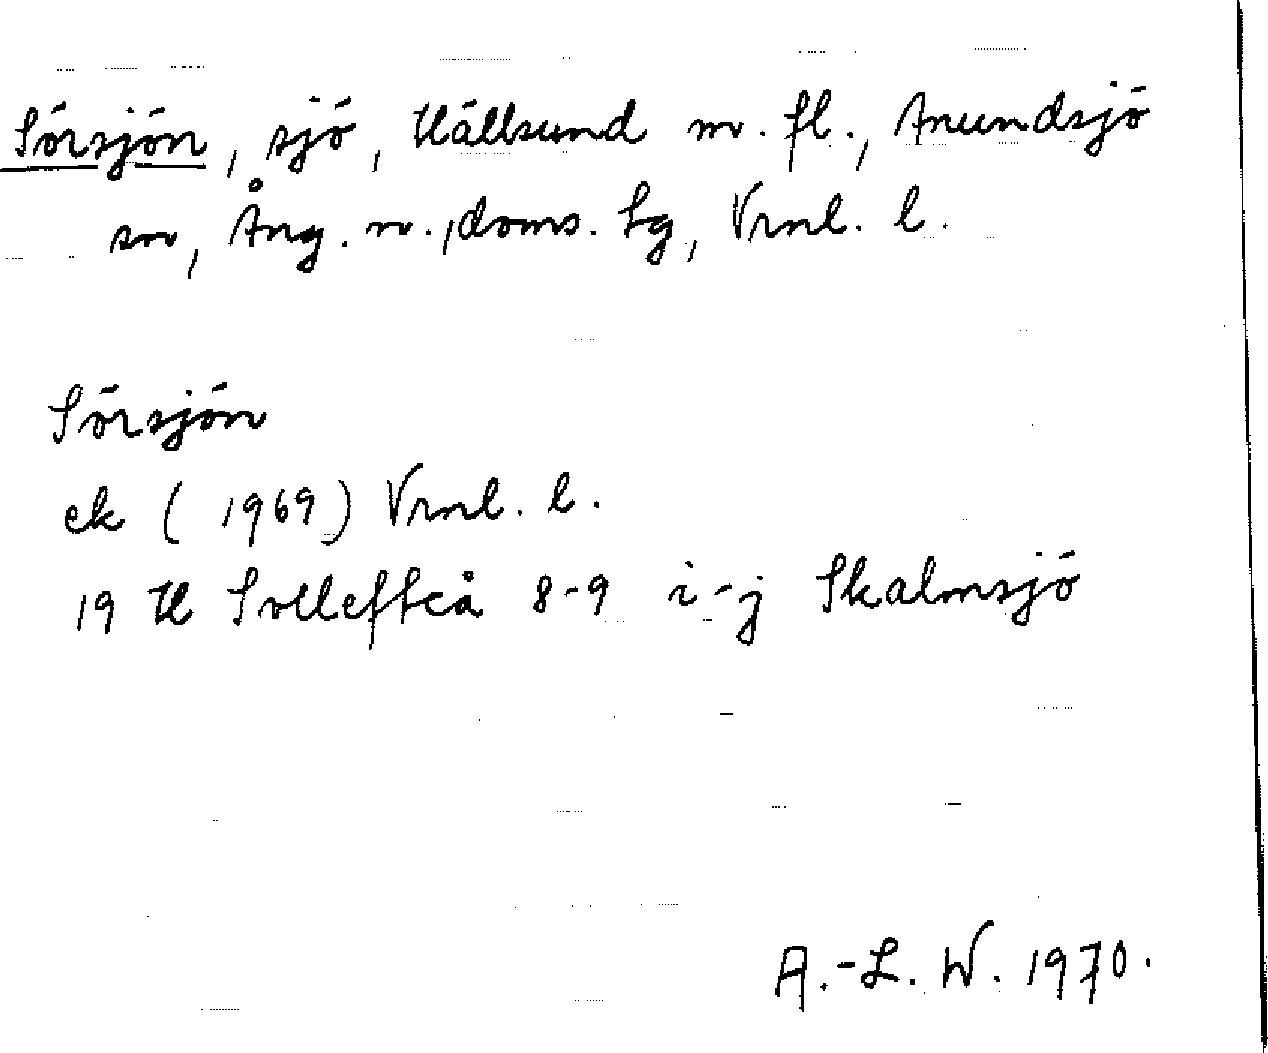 Sörsjön, sjö, Hällsund m. fl., Anundsjö
sn, Ång. n., doms. lg, Vrnl. l.
Sörsjön
ek (1969) Vrnl. l.
19 H Sollefteå 8-9 i-j Skalmsjö
A.-L. W. 1970.